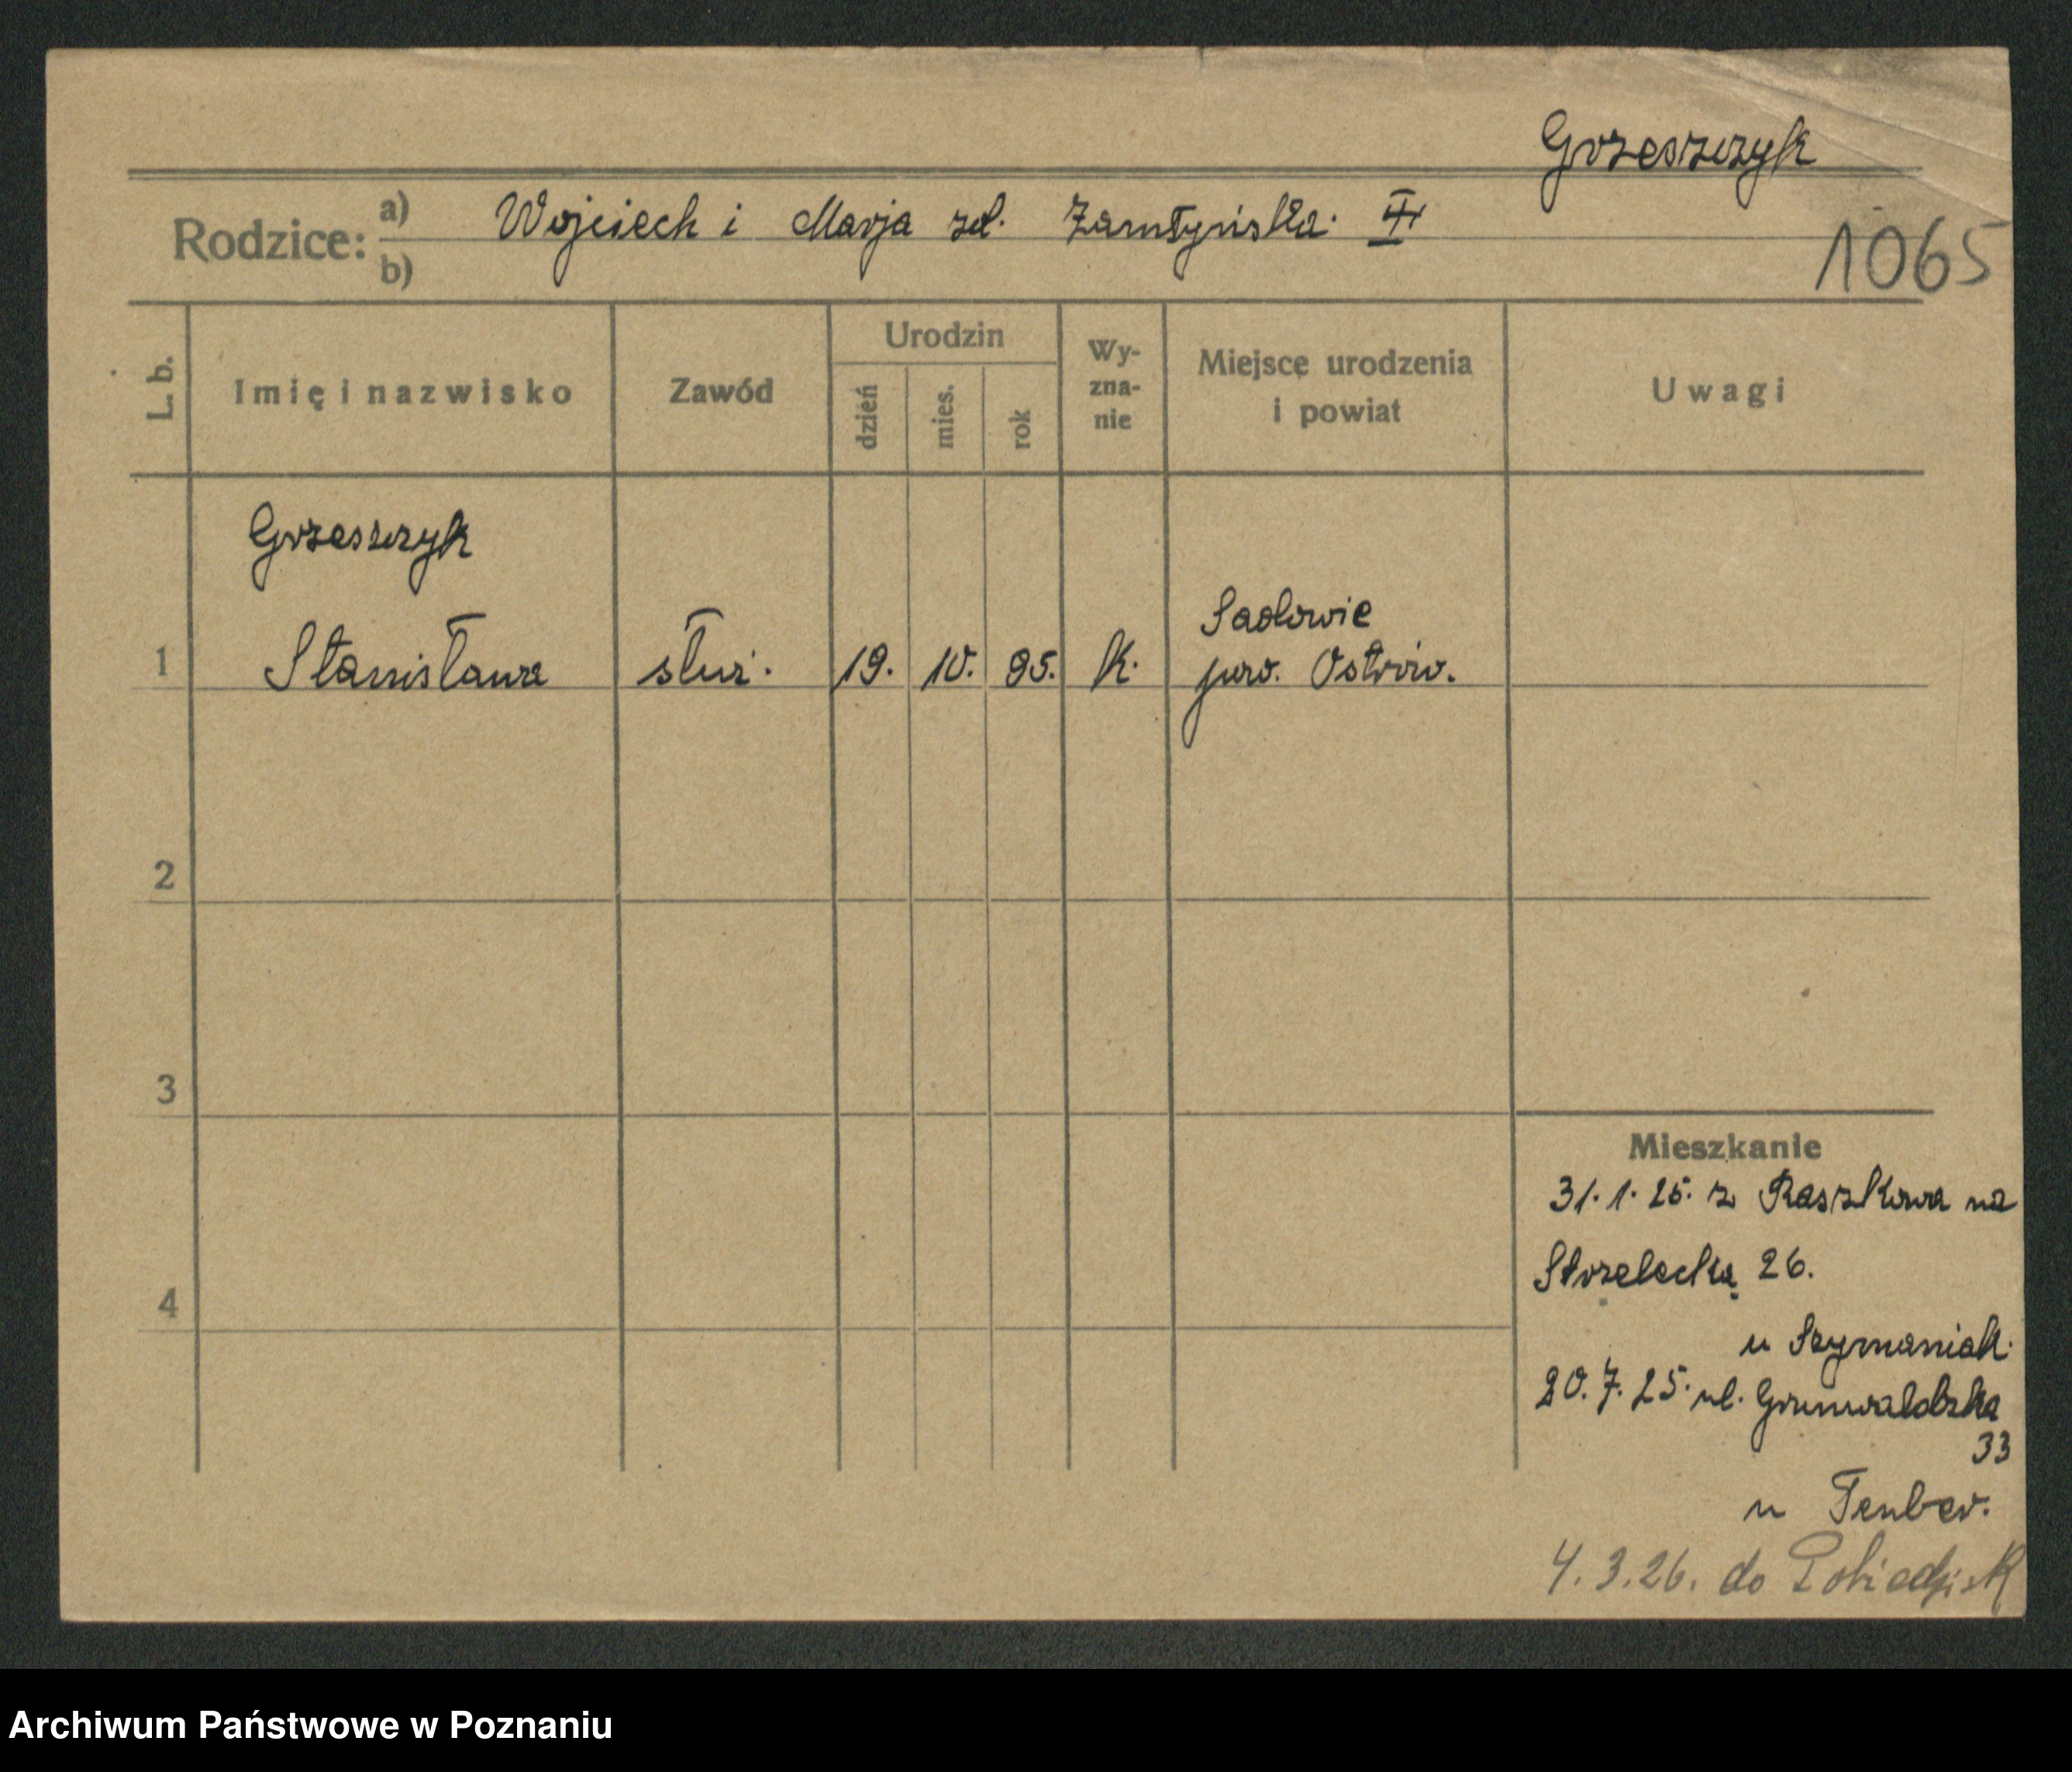 Grzeszczyk
Rodzice: a) Wojciech i Marja zd. III
b)
1065
L. b.
Imię i nazwisko
Zawód
Urodzin
dzień
mies.
rok
Wy-
zna-
nie
Miejsce urodzenia
i powiat
Uwagi
Grzeszczyk
1 Stanisława służ. 19. 10. 95. k. Sadowie
pow. Ostrów.
2
3
4
Mieszkanie
31. 1. 25. z Raszkowa na
Strzelecką 26.
u Szymaniak.
20. 7. 25. ul. Grunwaldzka
33
u Teuber.
4. 3. 26. do Pobiedzisk
Archiwum Państwowe w Poznaniu